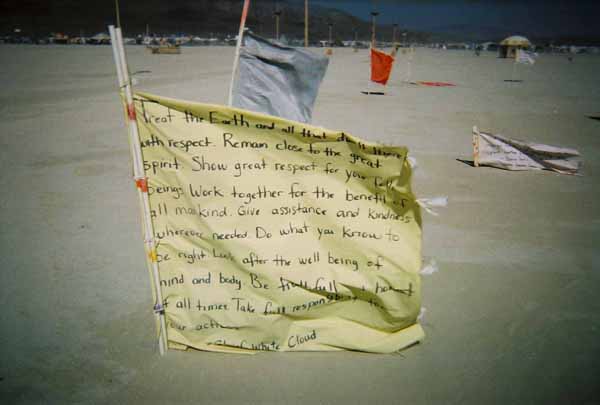 Treat the Earth and all that dwell there
with respect. Remain close to the great
spirit. Show great respect for your fell
beings. Work together for the benefit of
all mankind. Give assistance and kindness
wherever needed. Do what you know to
be right. Look after the well being of
mind and body. Be honest
at all times. Take full responsibility
your actions
Chief White Cloud